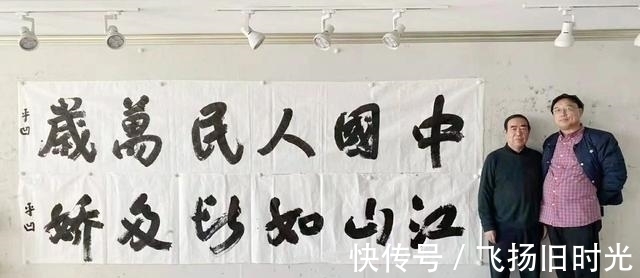 中國人民萬歲
平凹
江山如此多娇
平凹
快传号 / 飞扬旧时光